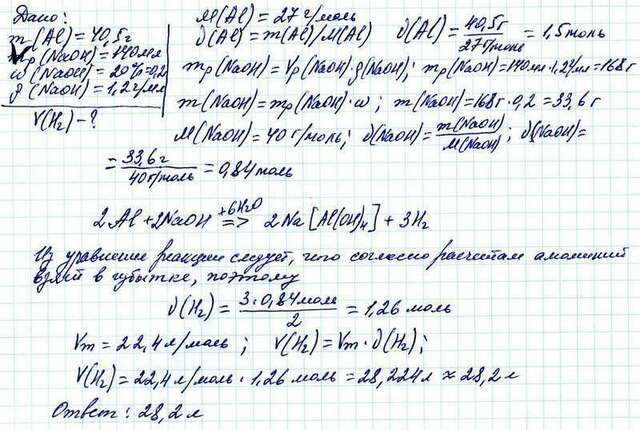 Дано:
m(Al) = 40,5г
Vр(NaOH) = 140мл
ω(NaOH) = 20% = 0,2
ρ(NaOH) = 1,2 г/мл
V(H₂) - ?
M(Al) = 27 г/моль
ν(Al) = m(Al)/M(Al) ν(Al) = 40,5г/27г/моль = 1,5 моль
mр(NaOH) = Vр(NaOH)·ρ(NaOH); mр(NaOH) = 140мл·1,2г/мл = 168г
m(NaOH) = mр(NaOH)·ω; m(NaOH) = 168г·0,2 = 33,6г
M(NaOH) = 40 г/моль; ν(NaOH) = m(NaOH)/M(NaOH); ν(NaOH) =
= 33,6г/40г/моль = 0,84 моль
2Al + 2NaOH +6H₂O => 2Na[Al(OH)₄] + 3H₂
Из уравнения реакции следует, что согласно расчетам алюминий
взят в избытке, поэтому
ν(H₂) = 3·0,84моль/2 = 1,26 моль
Vm = 22,4 л/моль; V(H₂) = Vm·ν(H₂);
V(H₂) = 22,4 л/моль · 1,26 моль = 28,224л ≈ 28,2 л
Ответ: 28,2 л